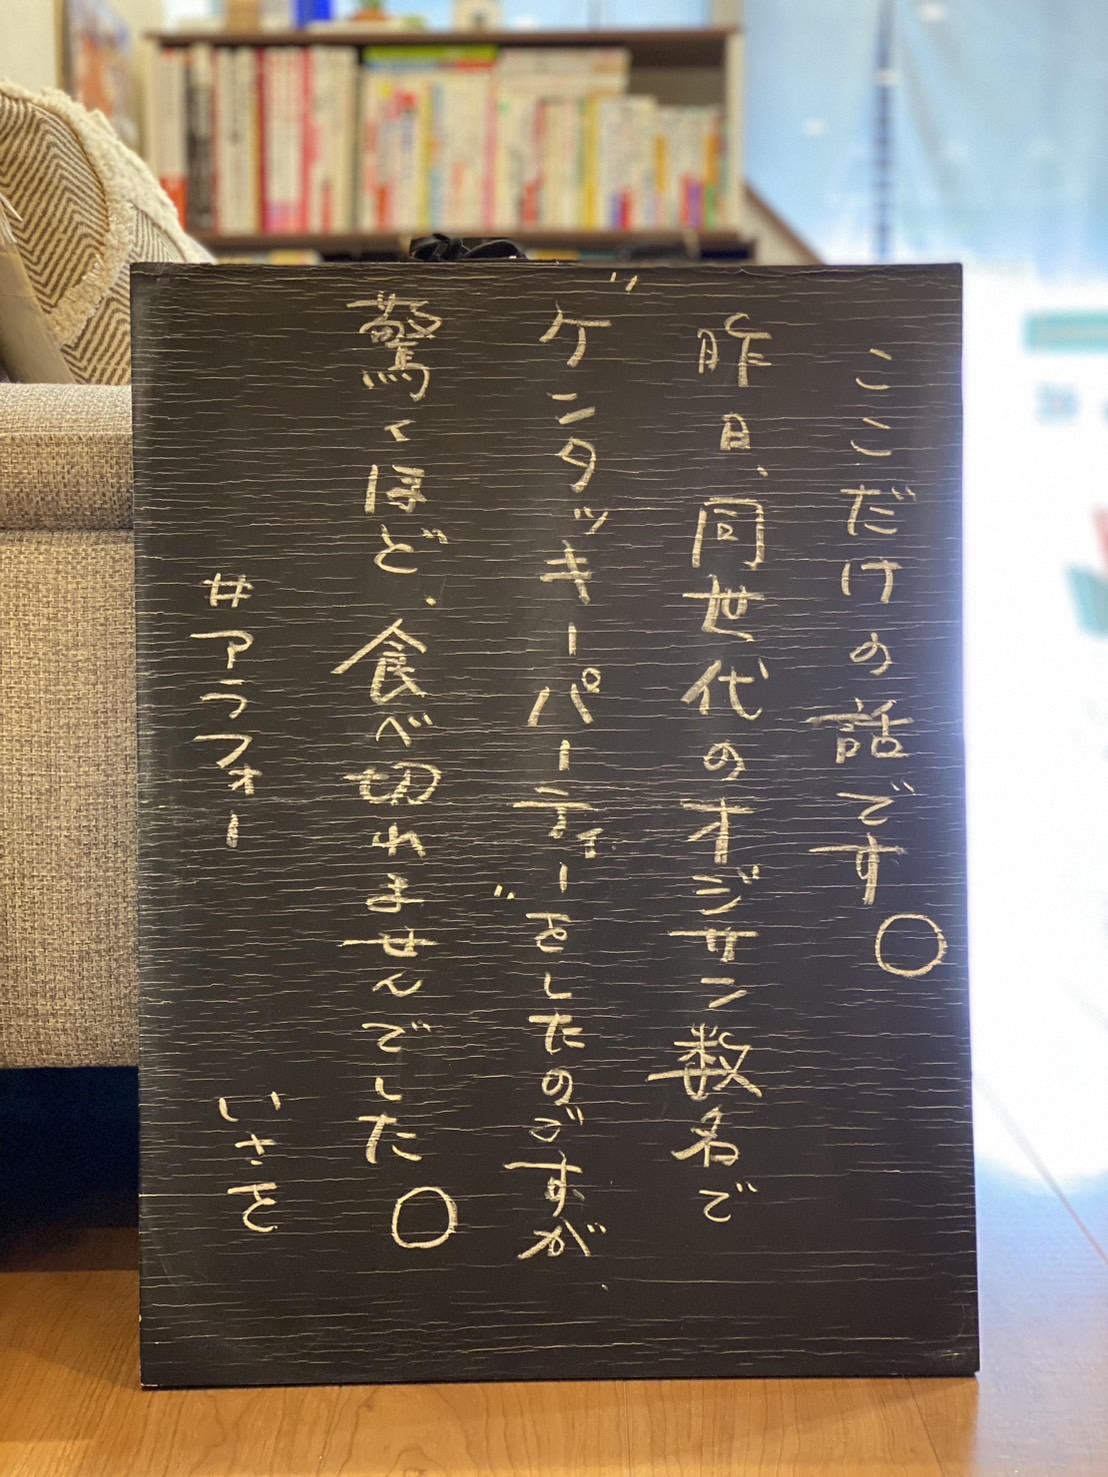 ここだけの話です。
昨日、同世代のオジサン数名で
"ケンタッキーパーティー"をしたのですが、
驚くほど、食べ切れませんでした。
#アラフォー
いさを